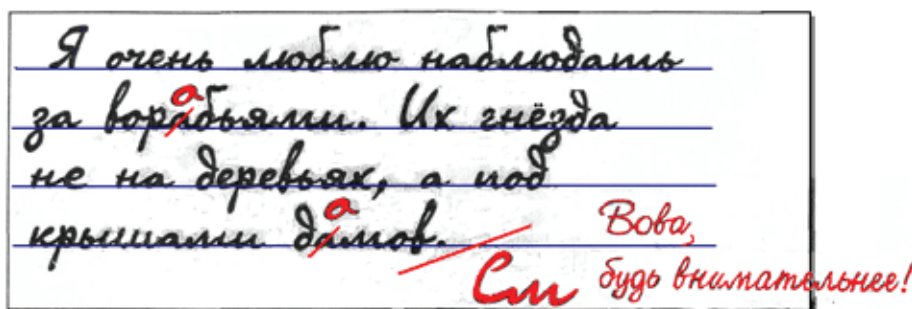 Я очень люблю наблюдать
за ворабьями. Их гнёзда
не на деревьях, а под
крышами дамов.
См
Вова,
будь внимательнее!